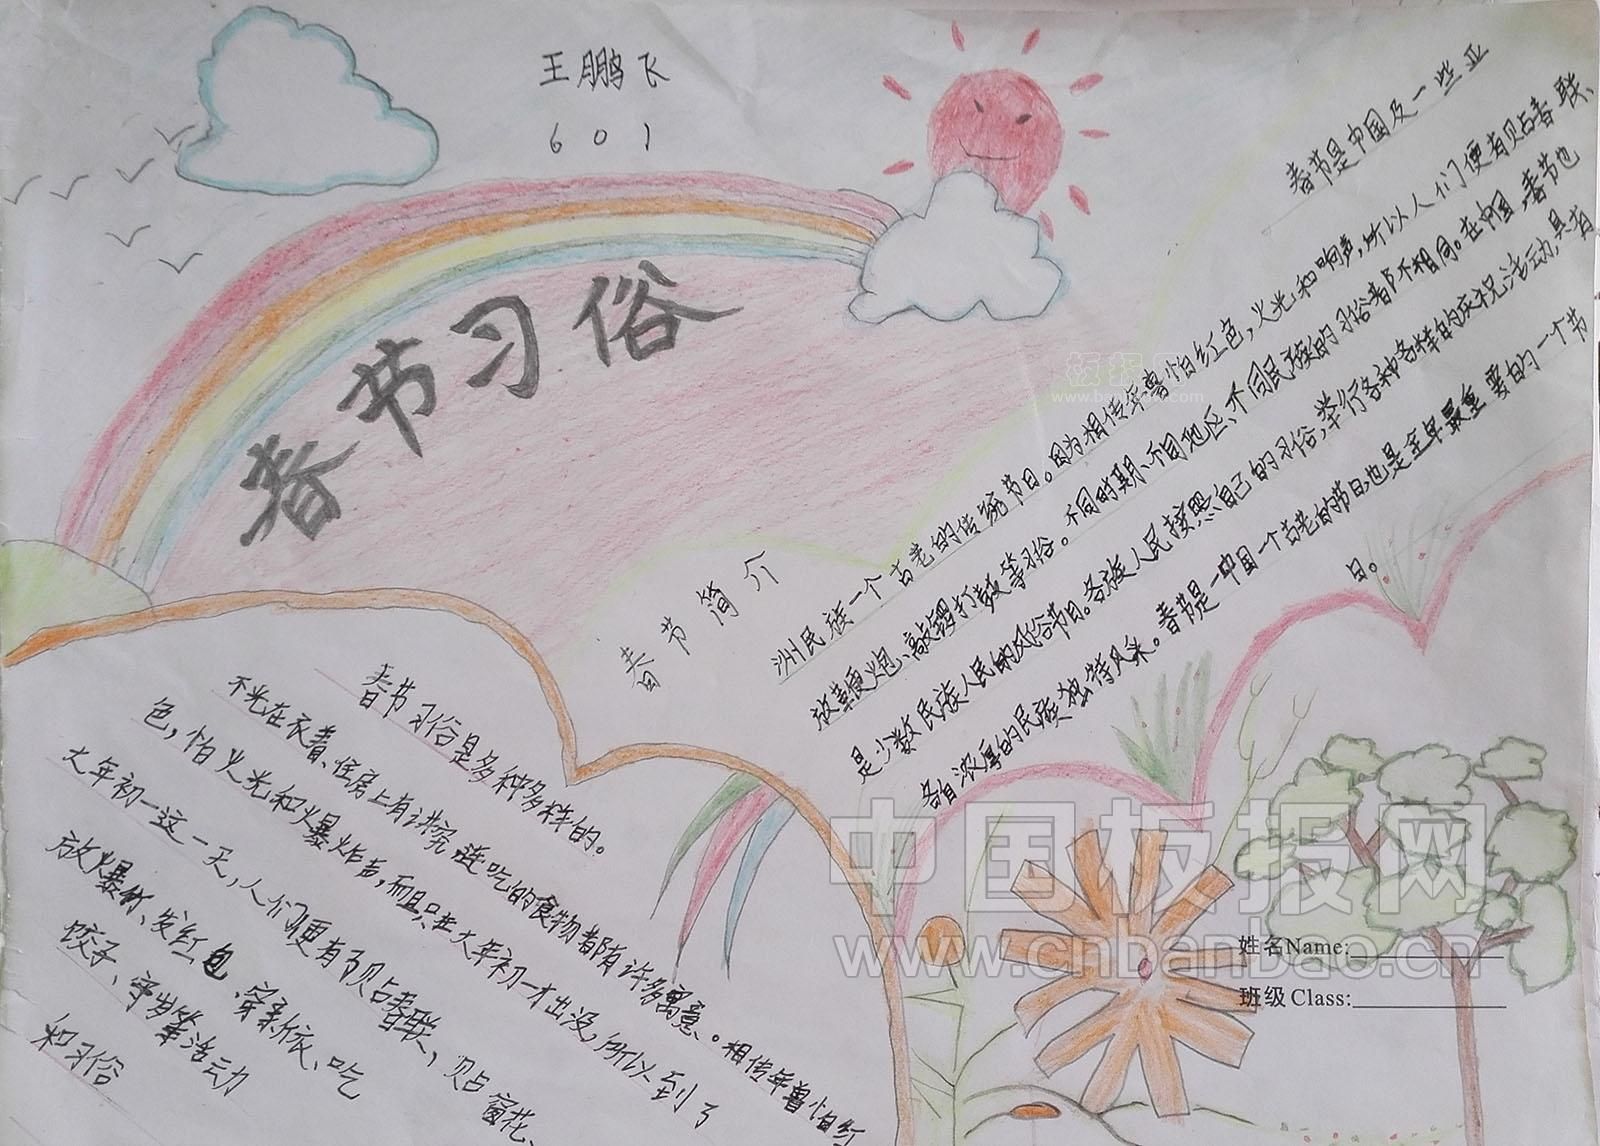 王鹏飞
601
春节习俗
春节简介
春节是中国及一些亚
洲民族一个古老的传统节日。因为相传年兽怕红色，火光和响声，所以人们便有贴春联、
放革便炮、敲锣打鼓等习俗。不同时期、不同地区、不同民族的习俗都不相同。在中国，春节也
是少数民族人民的风俗节日。各族人民按照自己的习俗，举行各种各样的庆祝活动，具有
各自浓厚的民族独特风采。春节是一中国一个古老的节日，也是全年最重要的一个节
日。
春节习俗是多种多样的。
不光在衣着、住房上有讲究连吃的食物都有许多寓意。相传年兽怕红
色，怕火光和爆炸声，而且只在大年初一才出没，所以到了
大年初一这一天，人们便有了贴春联，贴窗花、
放爆竹、发红包、穿新衣、吃
饺子、守岁等活动
和习俗
姓名Name:
班级Class:
板报网
www.banbao.com
中国板报网
www.cnbanbao.cn